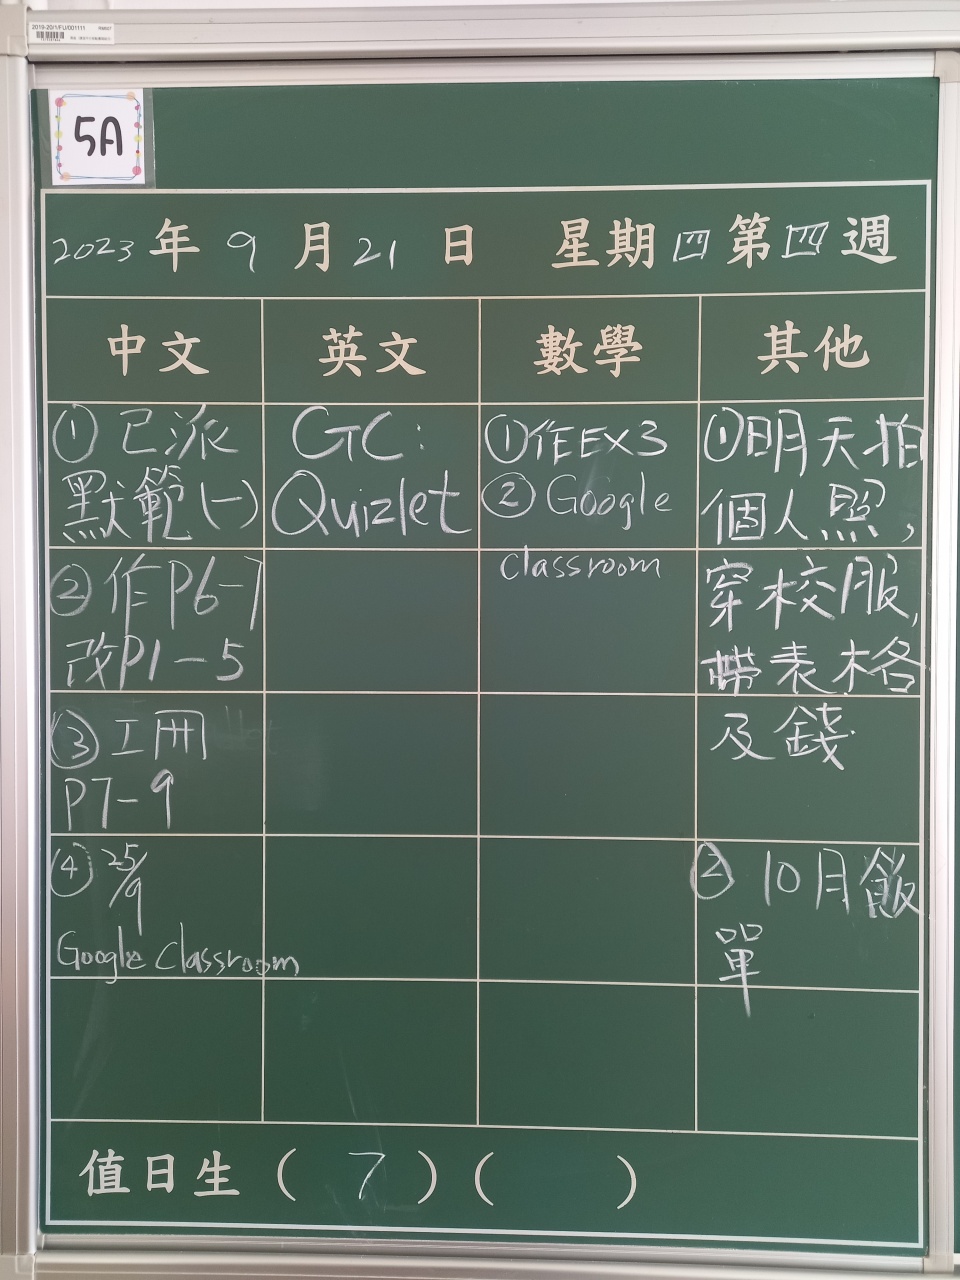 2019-20/1/FU/001111
5A
2023 年 9 月 21 日 星期 四 第 四 週
中文 英文 數學 其他
① 已派
默範(一)
② 作P6-7
改P1-5
③ 工冊
P7-9
④ 25/9
Google Classroom
GC:
Quizlet
① 作EX3
② Google
classroom
① 明天拍
個人照,
穿校服,
帶表格
及錢
② 10月飯
單
值日生 ( 7 ) ( )